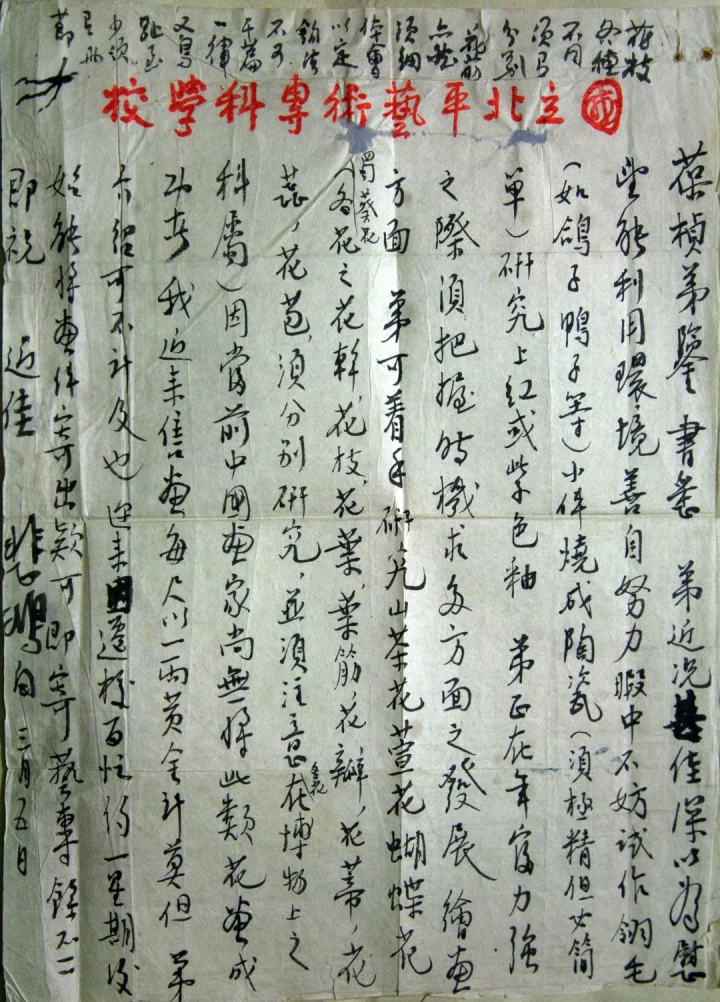 國立北平藝術專科學校
葆楨弟鑒 書悉 弟近況甚佳深以為慰
望能利用環境善自努力暇中不妨試作翎毛
(如鴿子鴨子等)小件燒成陶瓷(須極精但必簡
單)研究上紅或紫色釉 弟正在年富力強
之際須把握時機求多方面之發展繪畫
方面 弟可着手研究山茶花萱花蝴蝶花
蜀葵花(各花之花幹,花枝,花葉,葉筋,花瓣,花蒂,花
蕊,花苞,須分別研究,並須注意各花在博物上之
科屬)因當前中國畫家尚無將此類花畫成
功者 我近来售畫每尺以一兩黃金計 但 弟
介紹可不計及也 近来因遷校百忙約一星期後
始能將畫件寄出款可即寄藝專 餘不一
即祝 近佳 悲鴻白 三月五日
花枝
各種
不同
須
分別
須細
体會
以定
鉤法
不可
千篇
一律
又鳥
趾至
少須